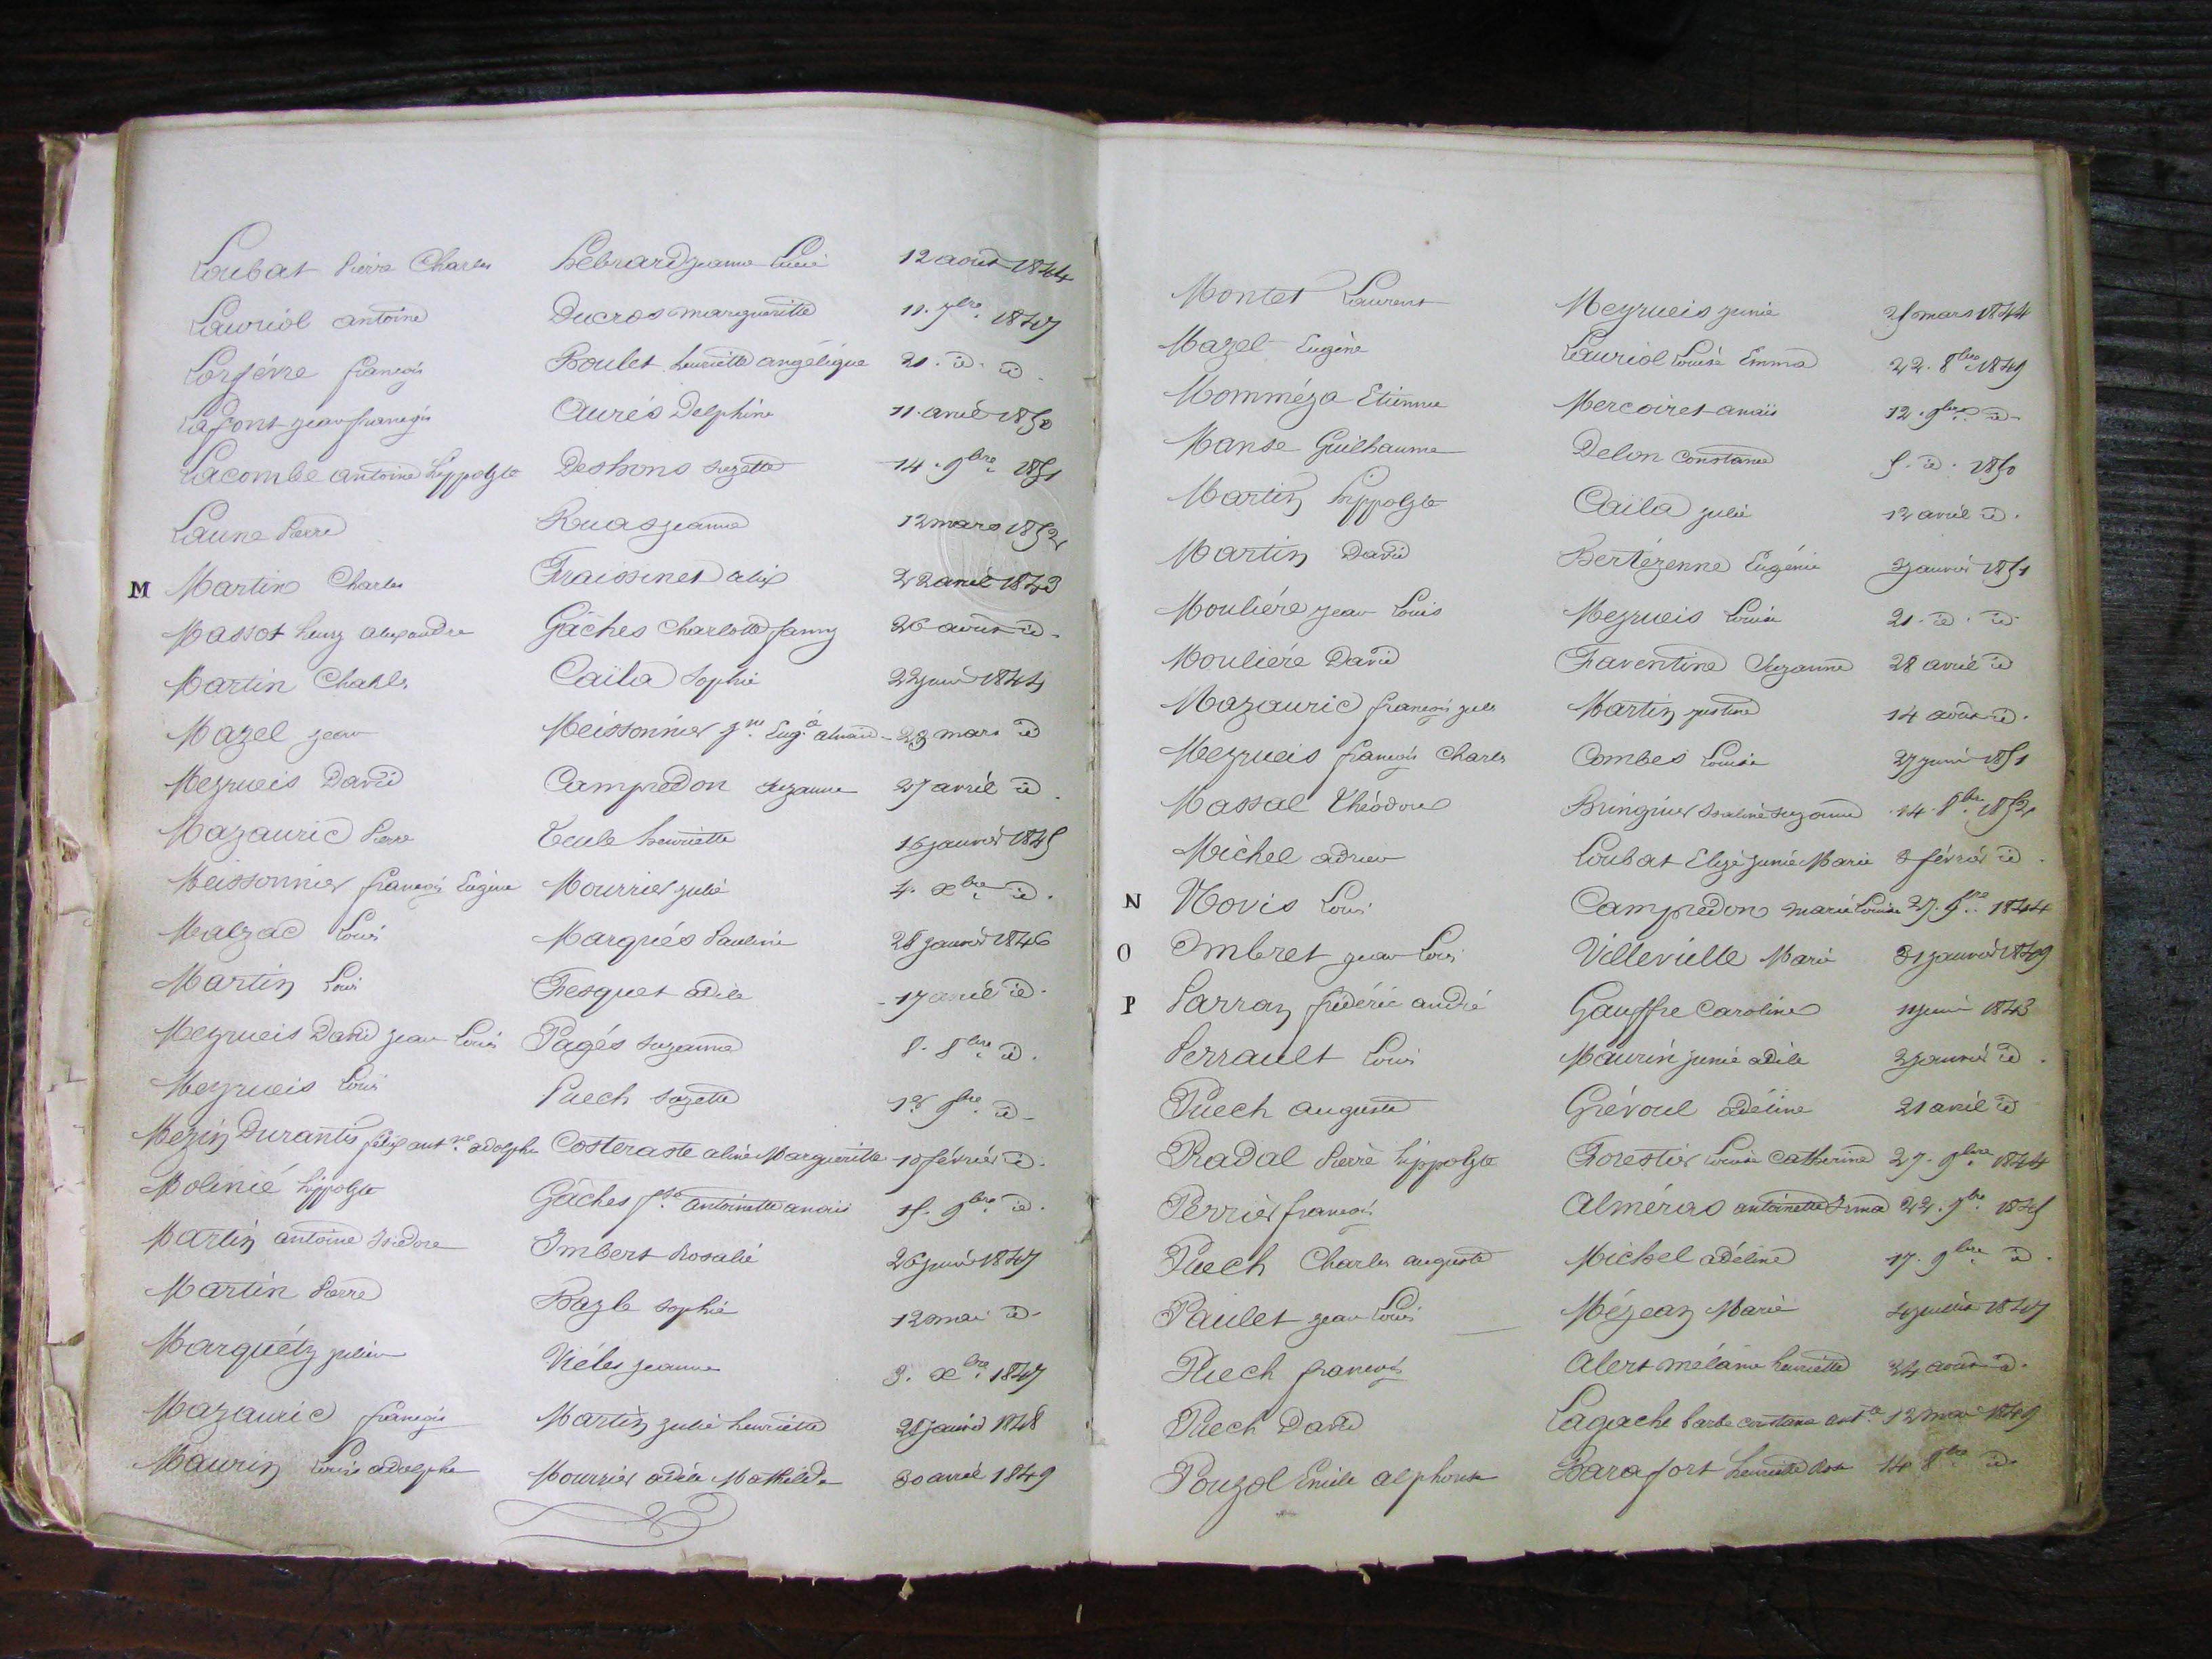 Loubat Pierre Charles Hebrard jeanne Lucie 12 août 1844
Lauriol antoine Ducros margueritte 11. 7bre 1847
Lorfévre françois Boulet henriette angélique 21. id. id.
Lafont jean françois Aurés Delphine 11. avril 1850
Lacombe antoine hippolyte Deshons suzette 14. 9bre 1851
Laune Pierre Ruas jeanne 12 mars 1852
M Martin Charles Fraissinet alix 22 avril 1843
Massot henry alexandre Gâches Charlotte fanny 26 août id.
Martin Charles Caïla Sophie 22 juin 1844
Mazel jean Meissonnier jne Eugie 23 mars id
Meyrueis David Campredon Suzanne 27 avril id.
Mazauric Pierre henriette 16 janvier 1845
Meissonnier françois Eugène Mourrier julie 4. xbre id.
Malzac Louis Marqués Pauline 28 janvier 1846
Martin Louis Fesquet adèle 17 avril id.
Meyrueis David jean Louis Pagés suzanne 8. 8bre id.
Meyrueis Louis Puech suzette 1er 9bre id.
Mezin Durantis félix antne adolphe Costeraste aline Margueritte 10 février id.
Molinié hippolyte Gâches fse antoinette anaïs 15. 9bre id.
Martin antoine Isidore Imbert Rosalie 26 juin 1847
Martin Pierre Bayle sophie 12 mai id.
Marquétz julien Viéles jeanne 3. xbre 1847
Mazauric françois Martin julie henriette 28 janvier 1848
Maurin Louis adolphe Mourrier adèle Mathilde 30 avril 1849
Montet Laurent Meyrueis junie 21 mars 1844
Mazel Eugène Lauriol Louise Emma 22. 8bre 1849
Momméja Etienne Mercoiret anaïs 12. 9bre id.
Manse Guilhaume Delon constance 5. id. 1850
Martin hippolyte Caïla julie 12 avril id.
Martin David Bertézenne Eugénie 3 janvier 1851
Mouliére jean Louis Meyrueis Louise 21. id. id.
Mouliére David Faventine Suzanne 28 avril id
Mazauric françois jules Martin justine 14 août id.
Meyrueis françois Charles Combes Louise 27 juin 1851
Massal Théodore Bringuier suzanne 14. 8bre 1852
Michel adrien Loubat Elizé junie Marie 8 février id.
N Novis Louis Campredon marie Louise 27. 1844
O Ombret jean Louis Villevielle Marie 31 janvier 1849
P Parran frédéric andré Gauffre Caroline 1843
Perrault Louis Maurin junie adèle 2 janvier id.
Puech auguste Grévoul adéline 21 avril id
Pradal Pierre hippolyte Forestier Louise Catherine 27. 9bre 1844
Perrier françois Alméras antoinette Irma 22. 9bre 1845
Puech Charles auguste Michel adéline 17. 9bre id.
Paulet jean Louis Méjean Marie 1847
Puech françois Albert mélanie henriette 24 août id.
Puech David Lagache barbe constance antte 12 mai 1849
Pouzol Emile alphonse Barafort henriette Rose 14 8bre id.